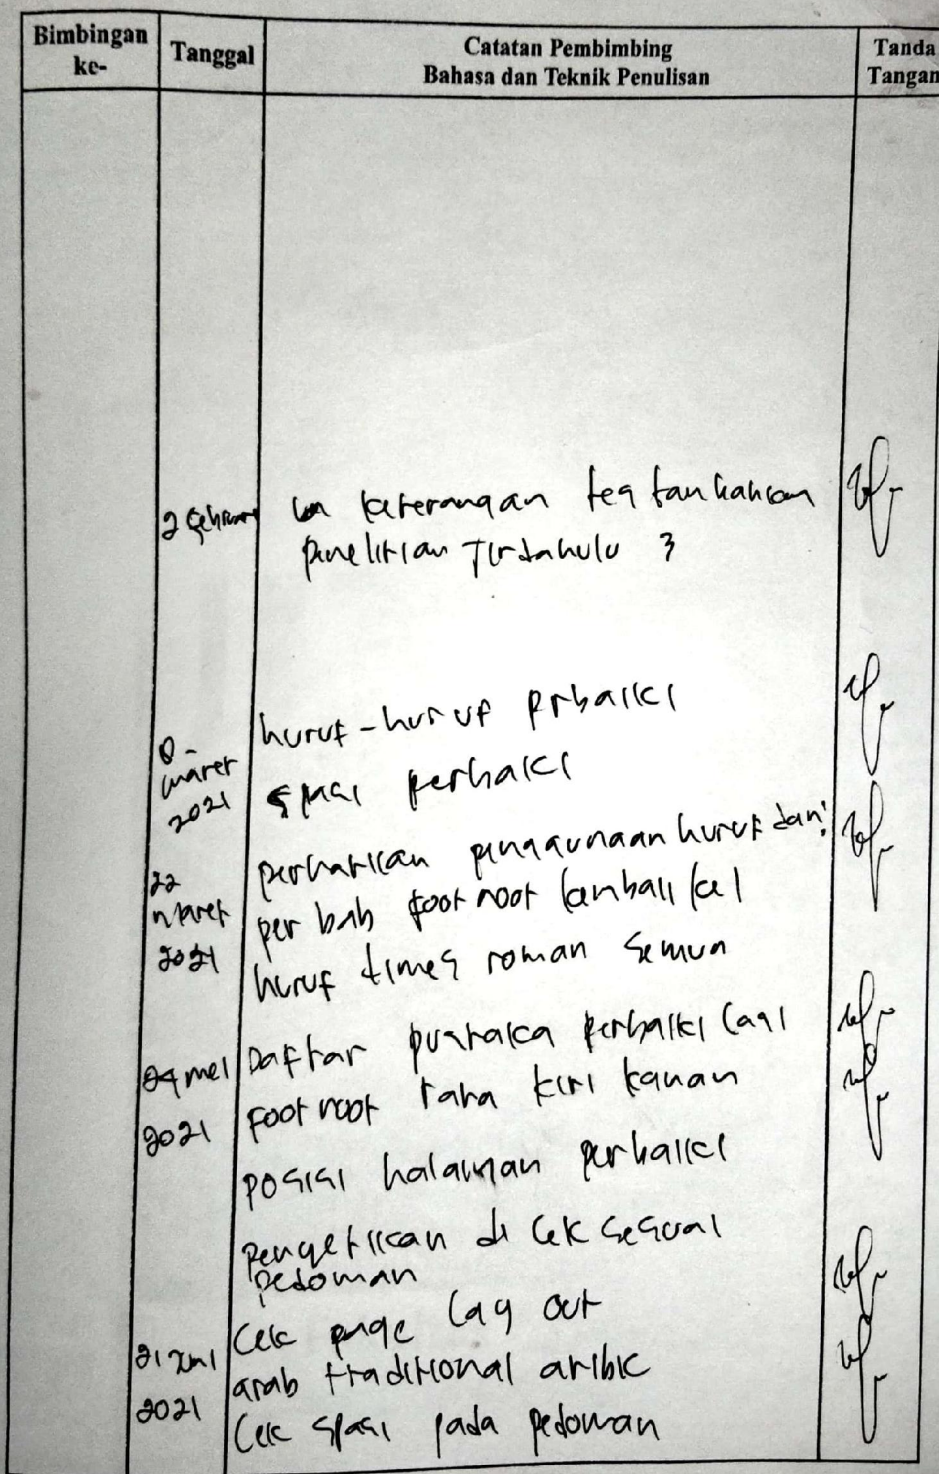 Bimbingan ke-
Tanggal
Catatan Pembimbing
Bahasa dan Teknik Penulisan
Tanda Tangan
2 Februari
keterangan
penelitian Terdahulu ?
huruf-huruf prbaiki
8-
maret
2021
spasi perbaiki
22
maret
2021
perhatikan penggunaan huruf dan
per bab foot noot kembali ke 1
huruf times roman semua
04 mei
2021
Daftar pustaka perbaiki lagi
foot noot rata kiri kanan
posisi halaman perbaiki
pengetikan di cek sesuai
pedoman
21 Juni
2021
Cek page lay out
arab traditional aribic
Cek spasi pada pedoman